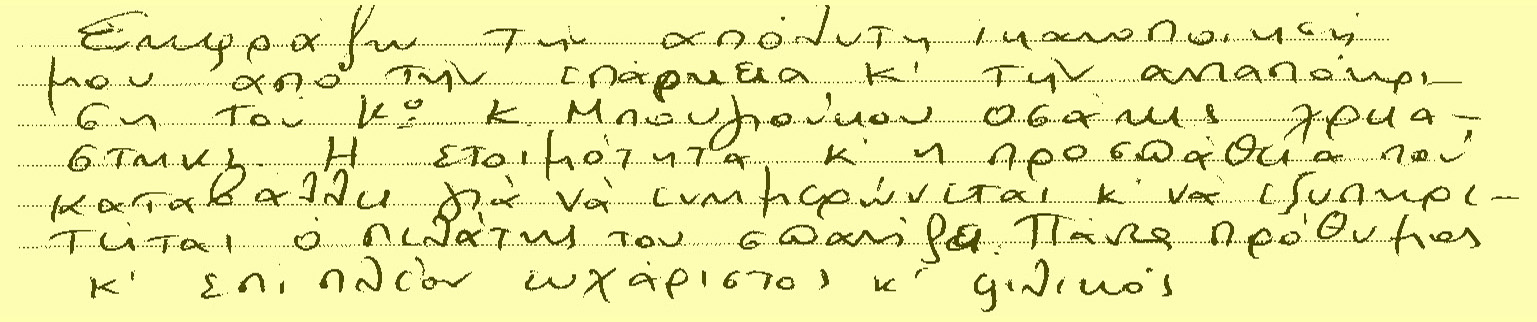 Εκφράζω την απόλυτη ικανοποίησή
μου από την επάρκεια κ' την ανταπόκρι-
ση του κου κ. Μπουγιούκου οσάκις χρειά-
στηκε. Η ετοιμότητα κ' η προσπάθεια που
καταβάλλει για να ενημερώνεται κ' να εξυπηρε-
τείται ο πελάτης του σπανίζει. Πάντα πρόθυμος
κ' επι πλέον ευχάριστος κ' φιλικός